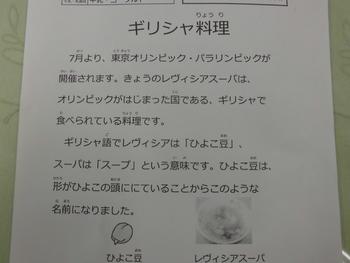 ギリシャ料理
7月より、東京オリンピック・パラリンピックが
開催されます。きょうのレヴィシアスーパは、
オリンピックがはじまった国である、ギリシャで
食べられている料理です。
ギリシャ語でレヴィシアは「ひよこ豆」、
スーパは「スープ」という意味です。ひよこ豆は、
形がひよこの頭ににていることからこのような
名前になりました。
ひよこ豆 レヴィシアスーパ